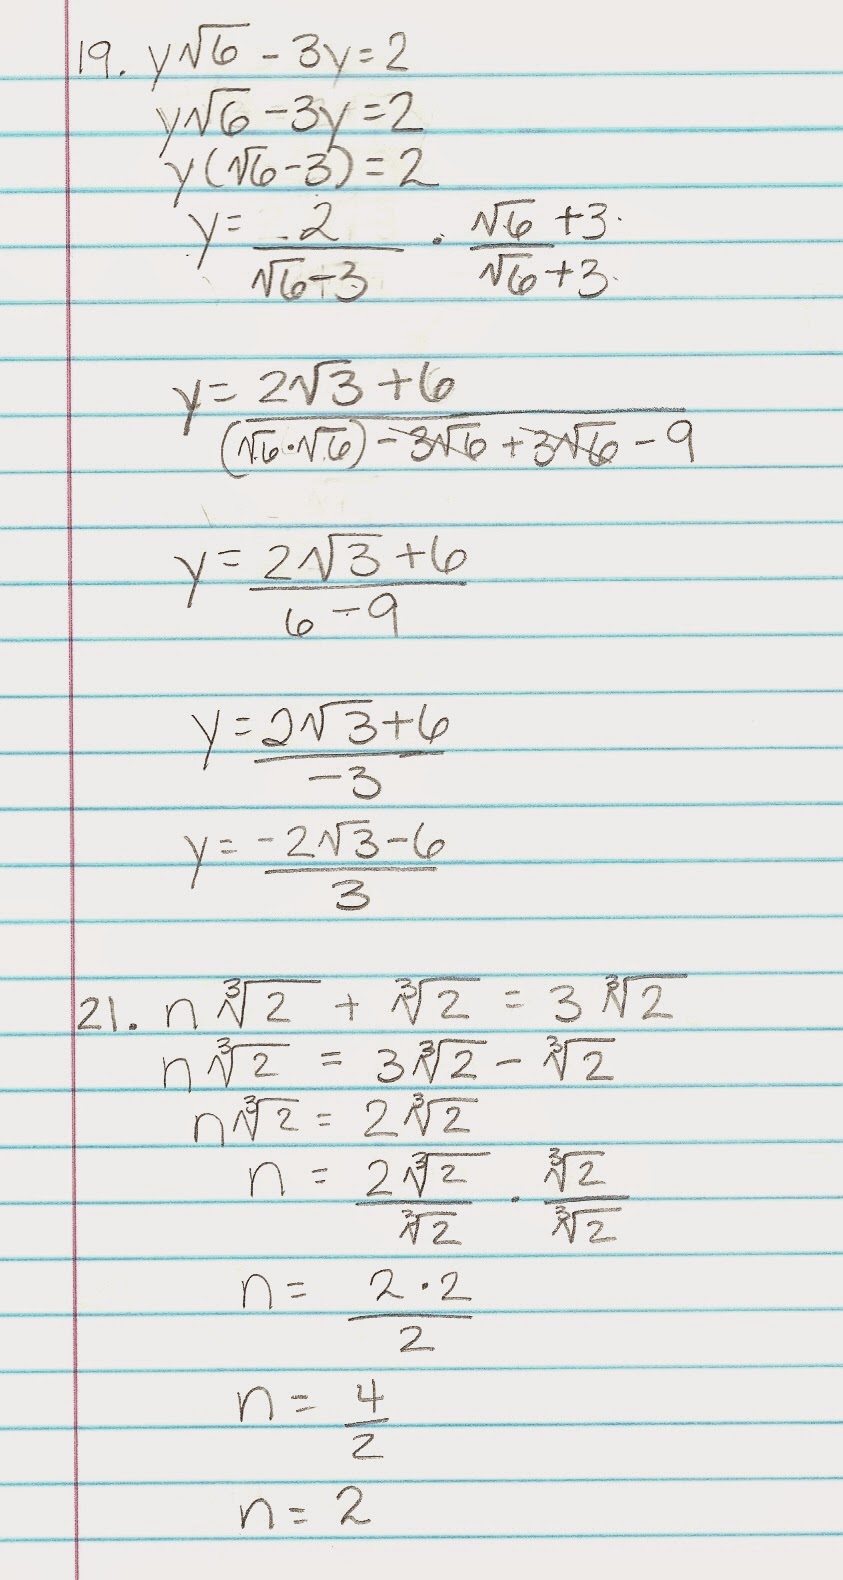 19. y√6 - 3y = 2
y√6 - 3y = 2
y(√6 - 3) = 2
y = 2/(√6-3) · (√6 + 3)/(√6 + 3)
y = (2√3 + 6)/((√6·√6) - 3√6 + 3√6 - 9)
y = (2√3 + 6)/(6 - 9)
y = (2√3 + 6)/(-3)
y = (-2√3 - 6)/3
21. n∛2 + ∛2 = 3∛2
n∛2 = 3∛2 - ∛2
n∛2 = 2∛2
n = 2∛2/∛2 · ∛2/∛2
n = 2·2/2
n = 4/2
n = 2